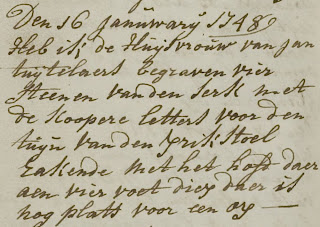 Den 16 januwarij 1748
Heb ik de Huijsvrouw van Jan
tuijtelaers begraven vier
steenen vanden serk met
de koopere letters voor den
tuijn vanden prikstoel
rakende met het hoft daer
aen vier voet diep daer is
nog plats voor een og